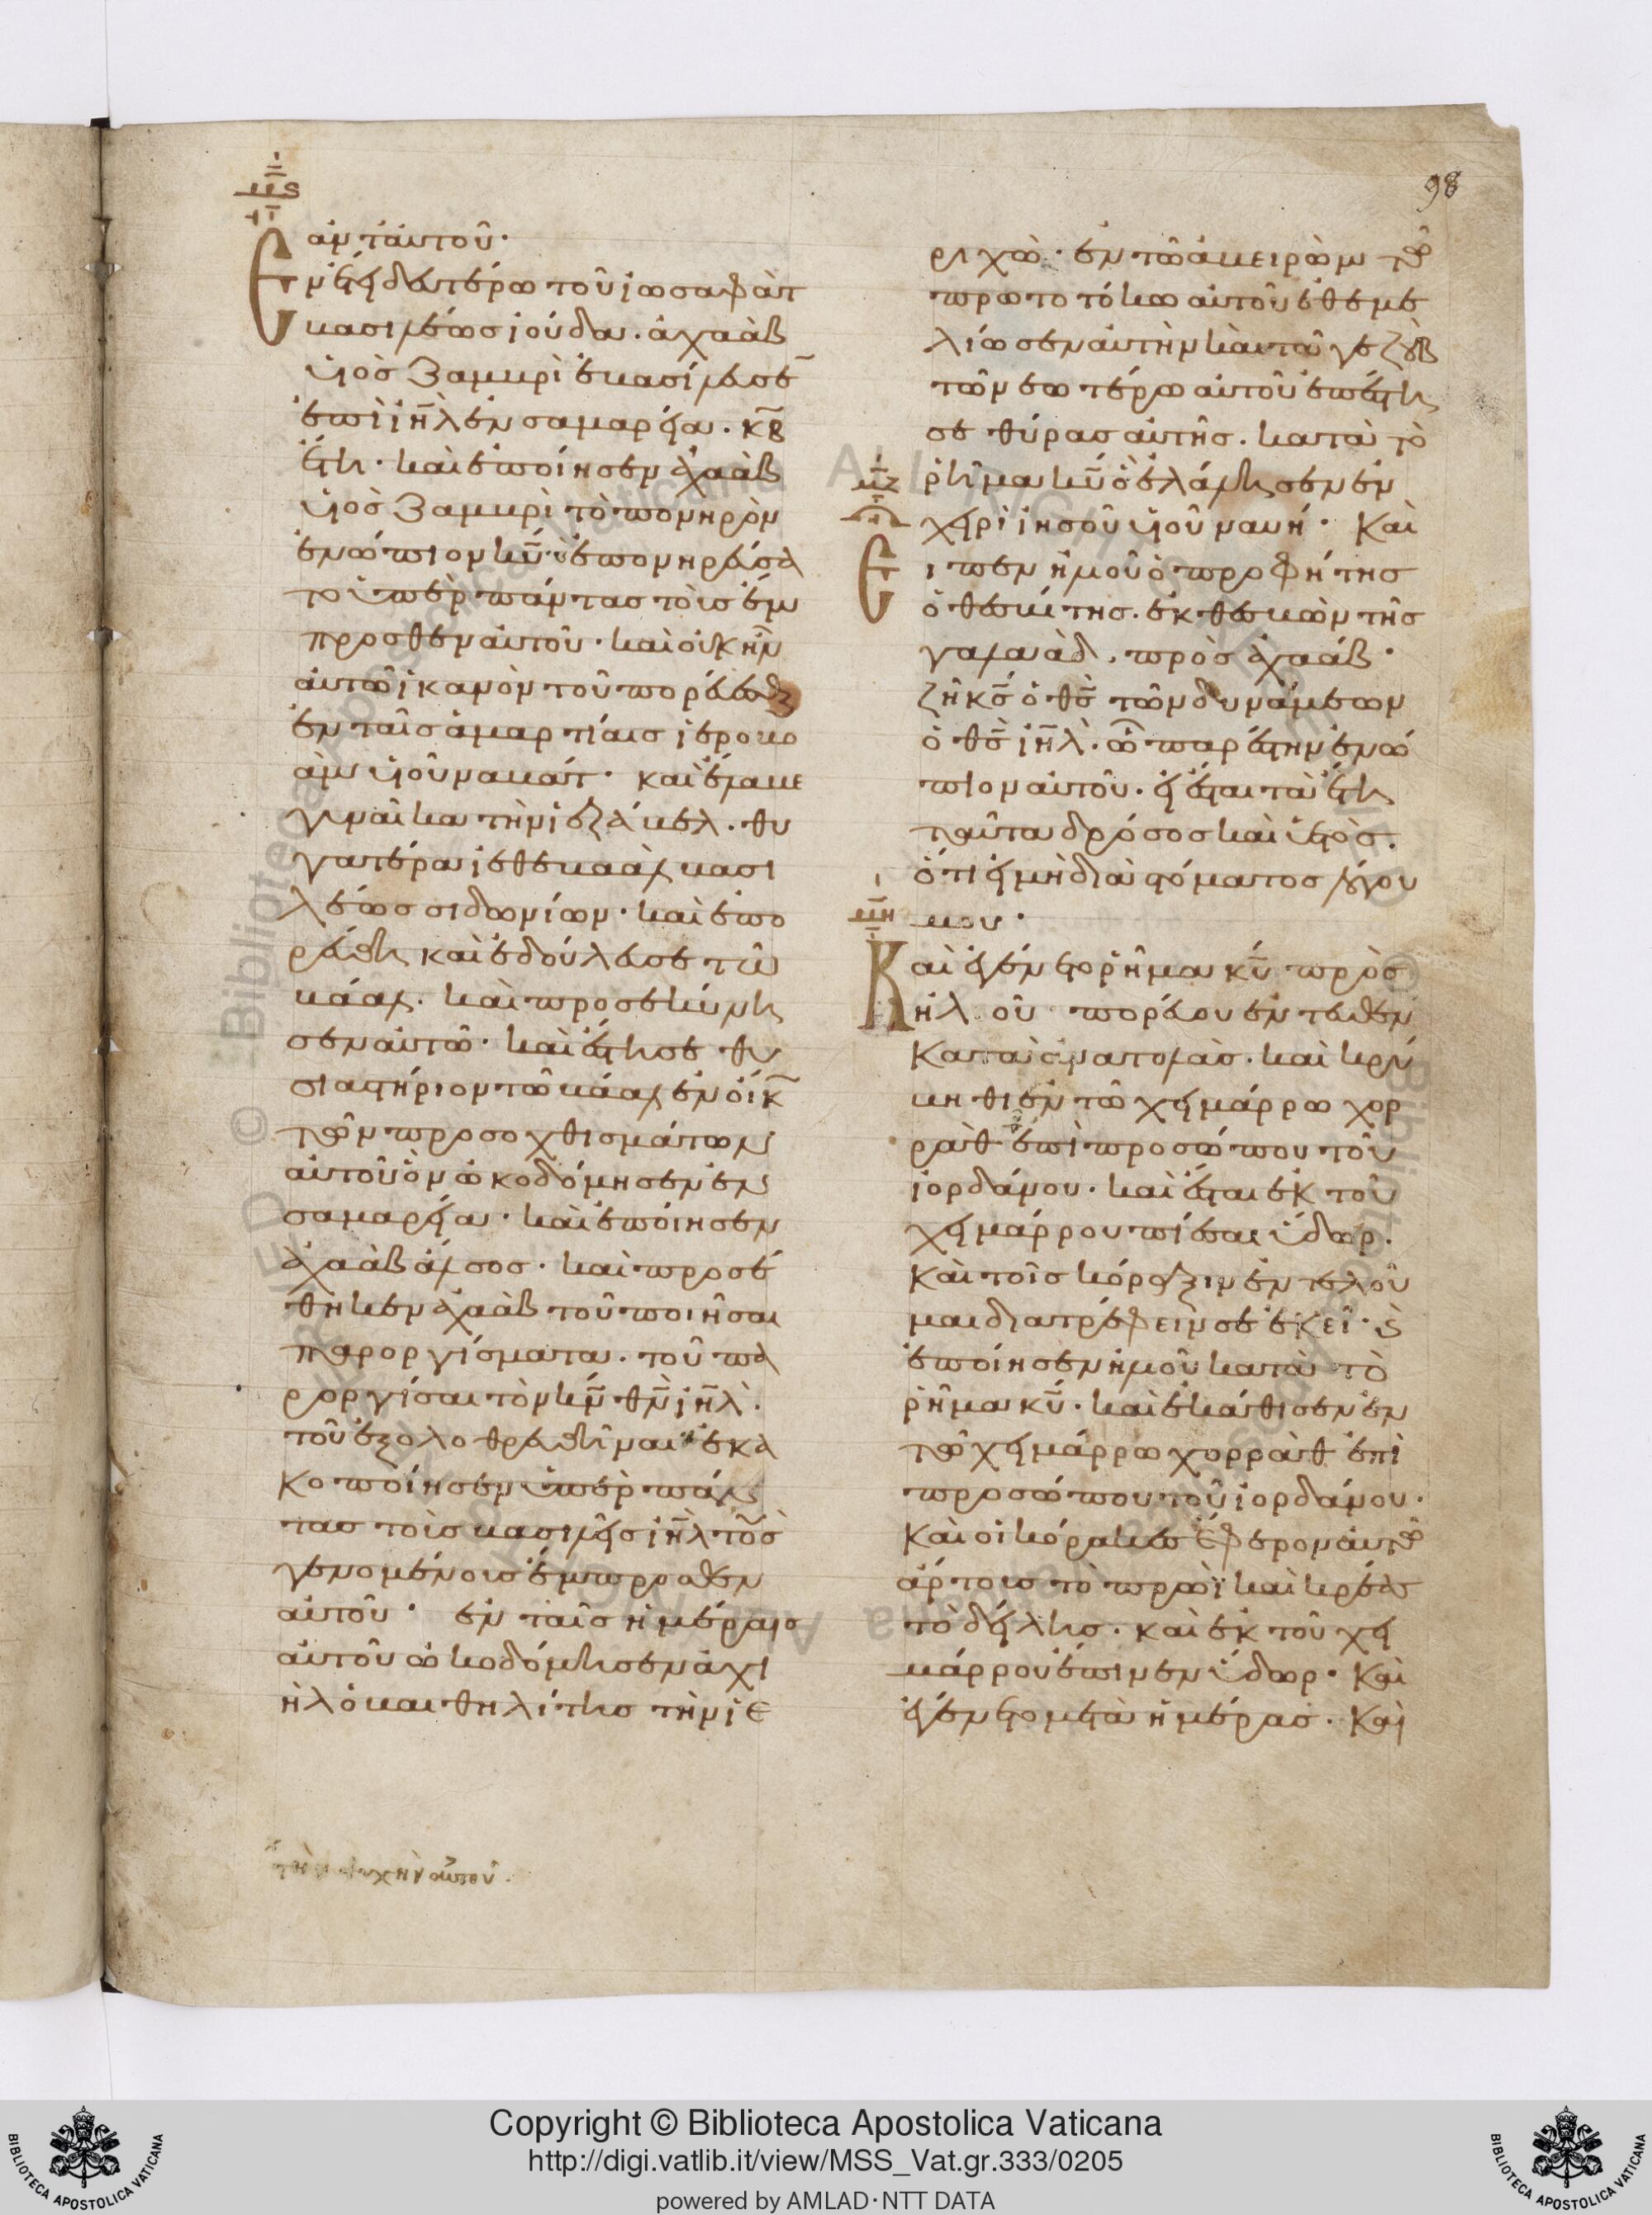 98
μϛ
ἀντ' αὐτοῦ·
Ἐν ἔτη δευτέρω τοῦ ἰωσαφὰτ
βασιλέωσ ἰούδα. ἀχαὰβ
υἱὸσ Ζαμβρὶ ἐβασίλευσε
ἐπὶ ιηλ ἐν σαμαρεία. κβ
ἔτη· καὶ ἐποίησεν ἀχαὰβ
υἱὸσ Ζαμβρὶ τὸ πονηρὸν
ἐνώπιον κυ ἐπονηρεύσα
το ὑπὲρ πάντασ τοὺσ ἔμ
προσθεν αὐτοῦ· καὶ οὐκ ἦν
αὐτῶ ἱκανὸν τοῦ πορεύεσθαι
ἐν ταῖσ ἁμαρτίαισ ἱεροβο
ὰμ υἱοῦ ναβάτ· καὶ ἔλαβε
γυναῖκα τὴν ἰεζάβελ. θυ
γατέρα ἰεθεβαὰλ βασι
λέωσ σιδωνίων· καὶ ἐπο
ρεύθη καὶ ἐδούλευσε τῶ
βάαλ. καὶ προσεκύνη
σεν αὐτῶ· καὶ ἔστησε θυ
σιαστήριον τῶ βάαλ ἐν οἴκ
τῶν προσοχθισμάτων
αὐτοῦ ὃν ὠκοδόμησεν ἐν
σαμαρεία· καὶ ἐποίησεν
ἀχαὰβ ἄλσοσ· καὶ προσέ
θηκεν ἀχαὰβ τοῦ ποιῆσαι
παροργίσματα. τοῦ πα
ροργίσαι τὸν κν θν ιηλ.
τοῦ ἐξολοθρευθῆναι ἐκα
κοποίησεν ὑπὲρ πάν
τασ τοὺσ βασιλεῖσ ιηλ τοὺσ
γενομένουσ ἔμπροσθεν
αὐτοῦ· ἐν ταῖσ ἡμέραισ
αὐτοῦ ὠκοδόμησεν ἀχι
ὴλ ὁ βαιθηλίτησ τὴν ἱε
ριχώ· ἐν τῶ ἀβειρὼν τῶ
πρωτοτόκω αὐτοῦ ἐθεμε
λίωσεν αὐτὴν καὶ τῶ γεζοὺβ
τῶ νεωτέρω αὐτοῦ ἐπέστη
σε θύρασ αὐτῆσ. κατὰ τὸ
μζ
ῥῆμα κυ ὃ ἐλάλησεν ἐν
χειρὶ ἰησοῦ υἱοῦ ναυή· Καὶ
Εἶπεν ἠλιοῦ ὁ προφήτησ
ὁ θεσβίτησ. ἐκ θεσβὼν τῆσ
γαλαὰδ, πρὸσ ἀχαάβ·
ζῆ κσ ὁ θσ τῶν δυνάμεων
ὁ θσ ιηλ. ὧ παρέστην ἐνώ
πιον αὐτοῦ. εἰ ἔσται τὰ ἔτη
ταῦτα δρόσοσ καὶ ὑετὸσ.
ὅτι εἰ μὴ διὰ στόματοσ λόγου
μη
μου·
Καὶ ἐγένετο ῥῆμα κυ πρὸσ
ἠλιοῦ πορεύου ἐντεῦθεν
κατὰ ἀνατολὰσ. καὶ κρύ
βηθι ἐν τῶ χειμάρρω χορ
ρὰθ ἐπὶ προσώπου τοῦ
ἰορδάνου. καὶ ἔσται ἐκ τοῦ
χειμάρρου πίεσαι ὕδωρ.
καὶ τοῖσ κόραξιν ἐντελοῦ
μαι διατρέφειν σε ἐκεῖ· καὶ
ἐποίησεν ἠλιοῦ κατὰ τὸ
ῥῆμα κυ. καὶ ἐκάθισεν ἐν
τῶ χειμάρρω χορρὰθ ἐπὶ
προσώπου τοῦ ἰορδάνου.
καὶ οἱ κόρακεσ ἔφερον αὐτῶ
ἄρτουσ τὸ πρωὶ καὶ κρέασ
τὸ δείλησ. καὶ ἐκ τοῦ χει
μάρρου ἔπινεν ὕδωρ. Καὶ
ἐγένετο μετὰ ἡμέρασ. Καὶ
ψυχὴν αὐτοῦ.
Copyright © Biblioteca Apostolica Vaticana
http://digi.vatlib.it/view/MSS_Vat.gr.333/0205
powered by AMLAD·NTT DATA
BIBLIOTECA APOSTOLICA VATICANA
BIBLIOTECA APOSTOLICA VATICANA